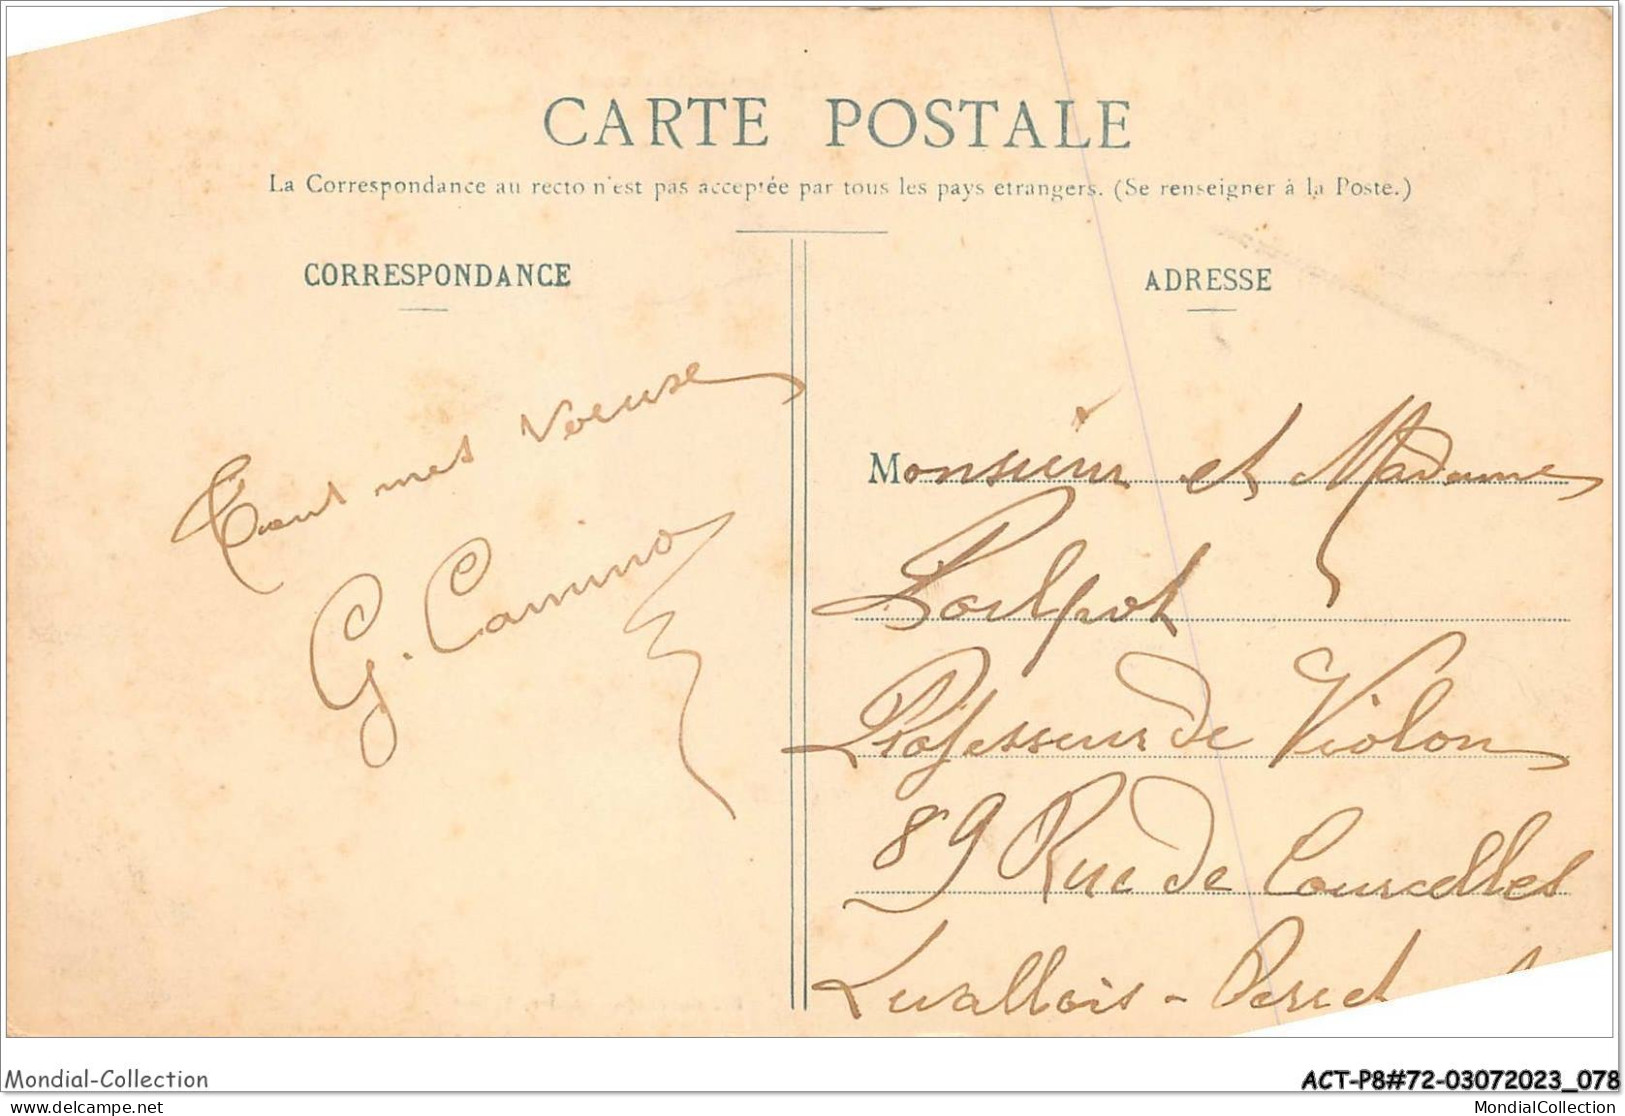 CARTE POSTALE
La Correspondance au recto n'est pas acceptée par tous les pays etrangers. (Se renseigner à la Poste.)
CORRESPONDANCE
Tout mes Voeuse
G. Camino
ADRESSE
Monsieur et Madame
Poilpot
Professeur de Violon
89 Rue de Courcelles
Levallois - Perret
Mondial-Collection
ACT-P8#72-03072023_078
www.delcampe.net
MondialCollection